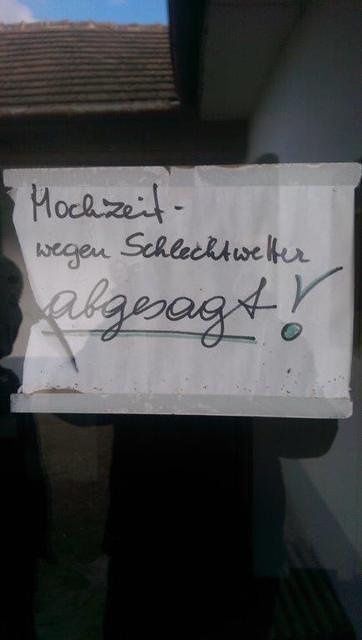 Hochzeit -
wegen Schlechtwetter
abgesagt!